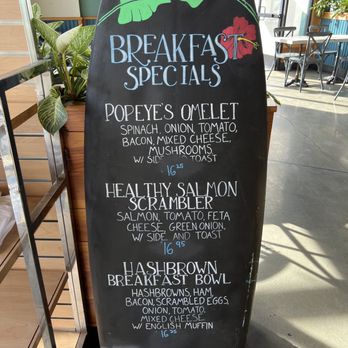 BREAKFAST
SPECIALS
POPEYE'S OMELET
SPINACH, ONION, TOMATO,
BACON, MIXED CHEESE,
MUSHROOMS
W/ SIDE AND TOAST
16.25
HEALTHY SALMON
SCRAMBLER
SALMON, TOMATO, FETA
CHEESE, GREEN ONION,
W/ SIDE AND TOAST
16.95
HASHBROWN
BREAKFAST BOWL
HASHBROWNS, HAM,
BACON, SCRAMBLED EGGS,
ONION, TOMATO,
MIXED CHEESE
W/ ENGLISH MUFFIN
16.25